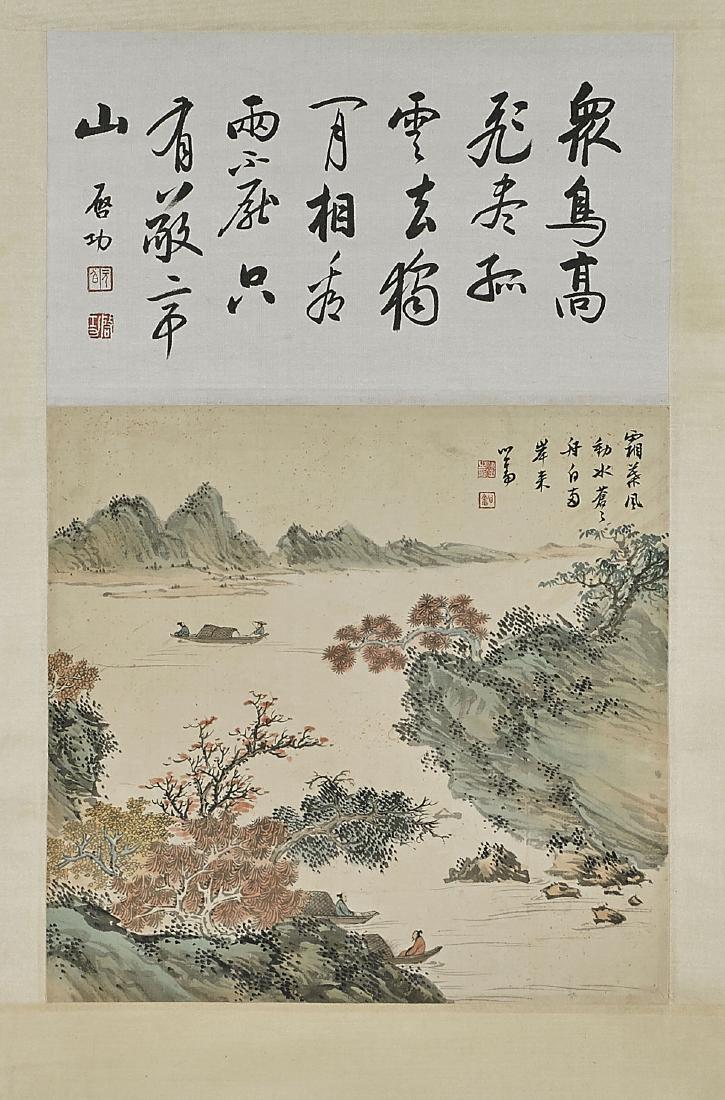 衆鳥高
飛盡孤
雲去獨
閒相看
兩不厭只
有敬亭
山
啓功
霜葉風
動水蒼々
舟自南
岸來
心畬